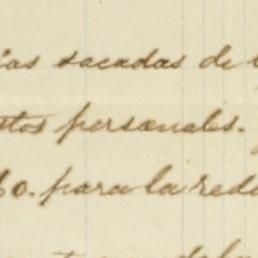 ias sacadas de
stos personales.
60. para la rede